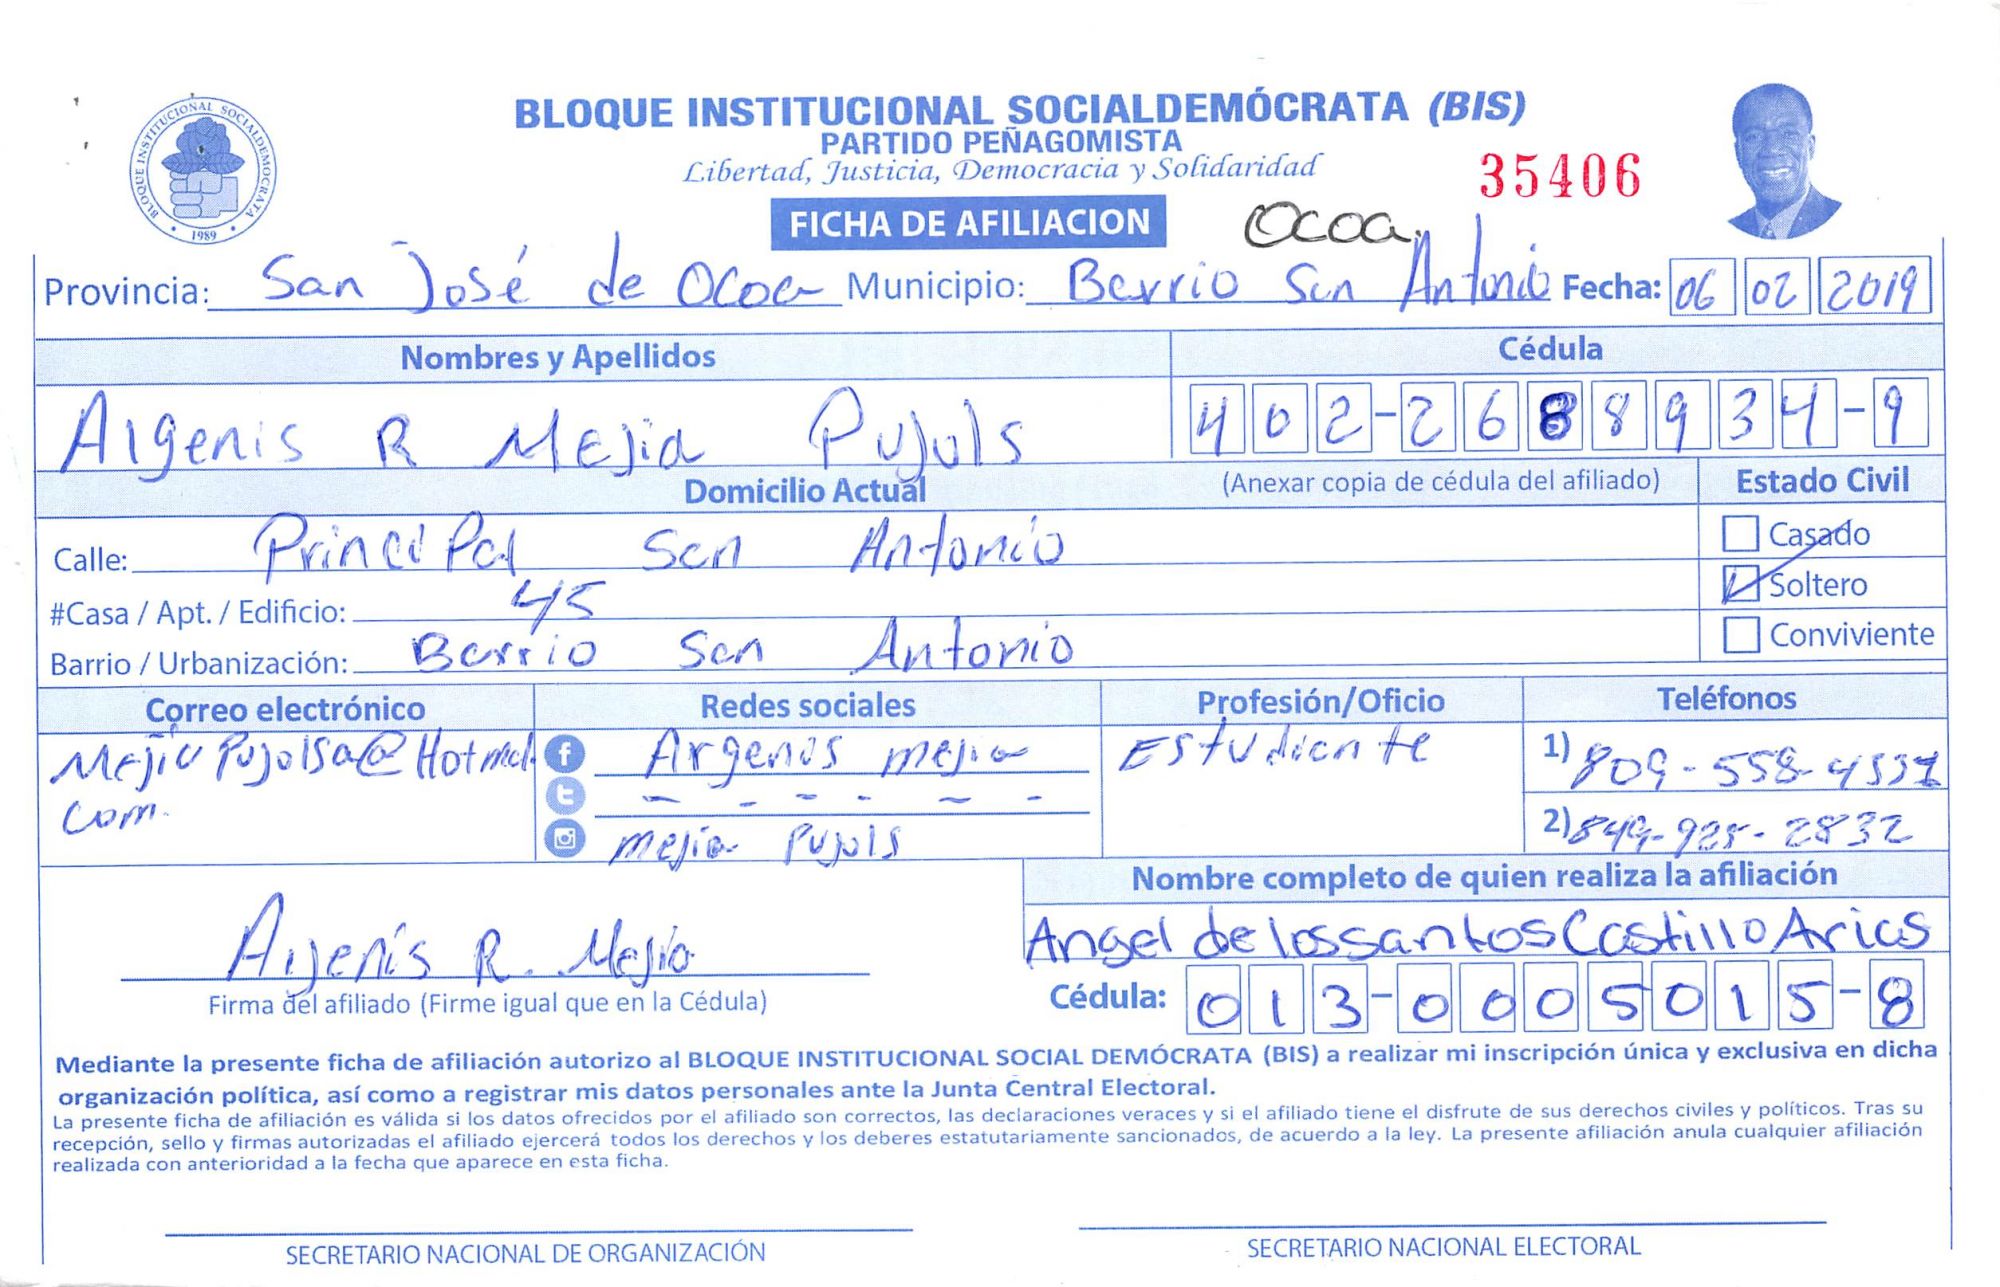 BLOQUE INSTITUCIONAL SOCIALDEMÓCRATA (BIS)
PARTIDO PEÑAGOMISTA
Libertad, Justicia, Democracia y Solidaridad
35406
BLOQUE INSTITUCIONAL SOCIALDEMOCRATA
1989
FICHA DE AFILIACION
Ocoa.
Provincia: San José de Ocoa Municipio: Barrio San Antonio Fecha: 06 02 2019
Nombres y Apellidos Cédula
Argenis R Mejia Pujols 402-2688934-9
Domicilio Actual (Anexar copia de cédula del afiliado) Estado Civil
Calle: Principal San Antonio Casado
#Casa / Apt. / Edificio: 45 Soltero
Barrio / Urbanización: Barrio San Antonio Conviviente
Correo electrónico Redes sociales Profesión/Oficio Teléfonos
MejiaPujolsa@Hotmal. Argenis mejia Estudiante 1) 809-558-4531
Com. - - - - - -
mejia Pujols 2) 849-925-2832
Nombre completo de quien realiza la afiliación
Argenis R. Mejia Angel de los santos Castillo Arias
Firma del afiliado (Firme igual que en la Cédula) Cédula: 013-0005015-8
Mediante la presente ficha de afiliación autorizo al BLOQUE INSTITUCIONAL SOCIAL DEMÓCRATA (BIS) a realizar mi inscripción única y exclusiva en dicha
organización política, así como a registrar mis datos personales ante la Junta Central Electoral.
La presente ficha de afiliación es válida si los datos ofrecidos por el afiliado son correctos, las declaraciones veraces y si el afiliado tiene el disfrute de sus derechos civiles y políticos. Tras su
recepción, sello y firmas autorizadas el afiliado ejercerá todos los derechos y los deberes estatutariamente sancionados, de acuerdo a la ley. La presente afiliación anula cualquier afiliación
realizada con anterioridad a la fecha que aparece en esta ficha.
SECRETARIO NACIONAL DE ORGANIZACIÓN SECRETARIO NACIONAL ELECTORAL